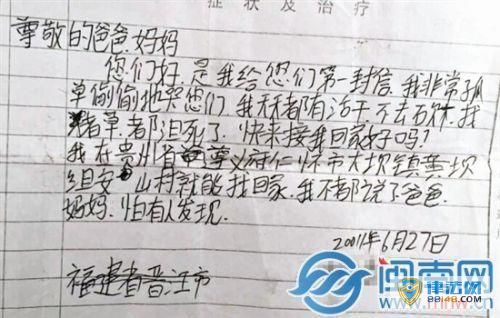 症状及治疗
尊敬的爸爸.妈妈
您们好.是我给您们第一封信.我非常孤
单偷偷地 您们 我天都有活干.不去 我
猪草.都迫死了.快来接我回家好吗？
我在贵州省 尊义府仁怀市大坝镇黄坝
组安 山村就能找回家.我不都说了爸爸.
妈妈.怕有人发现.
2001年6月27日
福建省晋江市
闽南网
www.mnw.cn
律法网
BB148.com